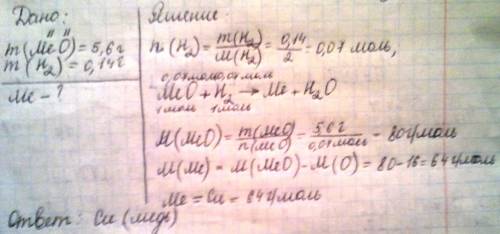 Дано:
m(MeO) = 5,6 г
m(H₂) = 0,14 г
Me - ?
Решение:
n(H₂) = m(H₂)/M(H₂) = 0,14/2 = 0,07 моль,
0,07 моль 0,07 моль
MeO + H₂ → Me + H₂O
1 моль 1 моль
M(MeO) = m(MeO)/n(MeO) = 5,6 г/0,07 моль = 80 г/моль
M(Me) = M(MeO) - M(O) = 80 - 16 = 64 г/моль
Me = Cu = 64 г/моль
Ответ: Cu (медь)